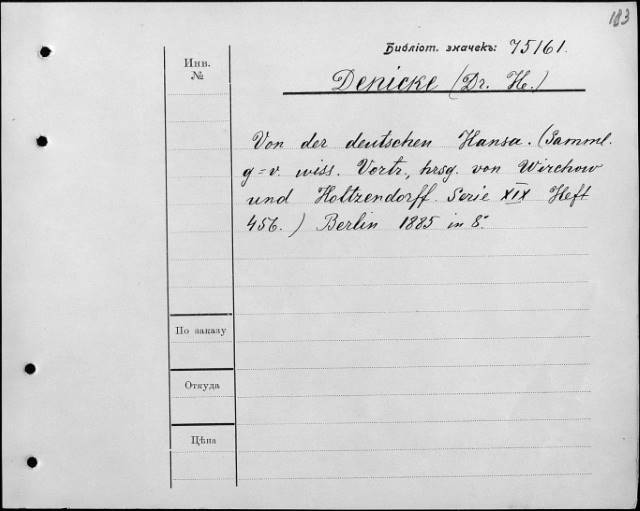 183
Библіот. значекъ: 75161.
Инв.
№
Denicke (Dr. H.)
Von der deutschen Hansa. (Samml.
g=v. wiss. Vortr., hrsg. von Wirchow
und Holtzendorff. Serie XIX Heft
456.) Berlin 1885 in 8°
По заказу
Откуда
Цѣна